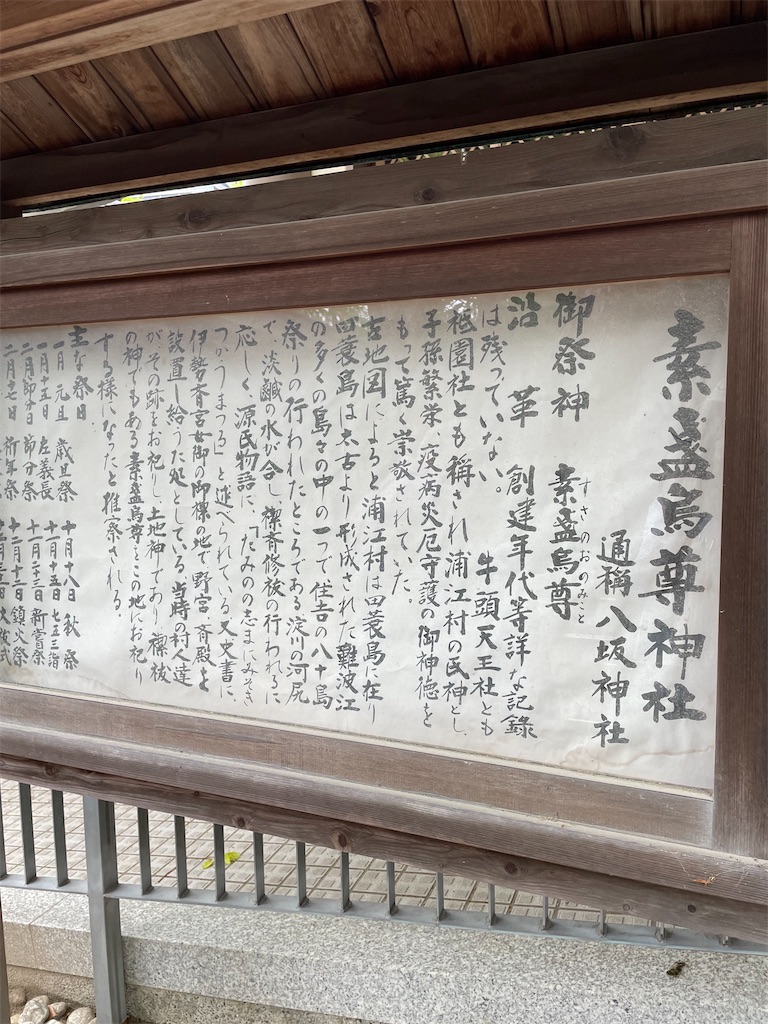 素盞烏尊神社
通稱八坂神社
御祭神　素盞烏尊
すさのおのみこと
沿　革　創建年代等詳な記録
は残っていない。　牛頭天王社とも
祗園社とも稱され浦江村の氏神とし、
子孫繁栄、疫病災厄守護の御神徳を
もって篤く崇敬されていた。
古地図によると浦江村は田蓑島に在り
田蓑島は太古より形成された難波江
の多くの島々の中の一つで住吉の八十島
祭りの行われたところである淀川の河尻
で、淡鹹の水が合し、禊斉修祓の行われるに
応しく、源氏物語に、「たみの志まにみそぎ
つかうまつる」と述べられている又文書に、
伊勢斉宮女御の御禊の地で野宮、斉殿を
設置し給うた処としている。当時の村人達
がその跡をお祀りし、土地神であり、禊祓
の神でもある素盞烏尊をこの地にお祀り
する様になったと推察される。
主な祭日
一月　元旦　歳旦祭　十月十八日　秋祭
一月十五日　左義長　十一月十五日　七五三詣
二月節分日　節分祭　十一月二十三日　新嘗祭
二月十七日　祈年祭　十二月十二日　鎮火祭